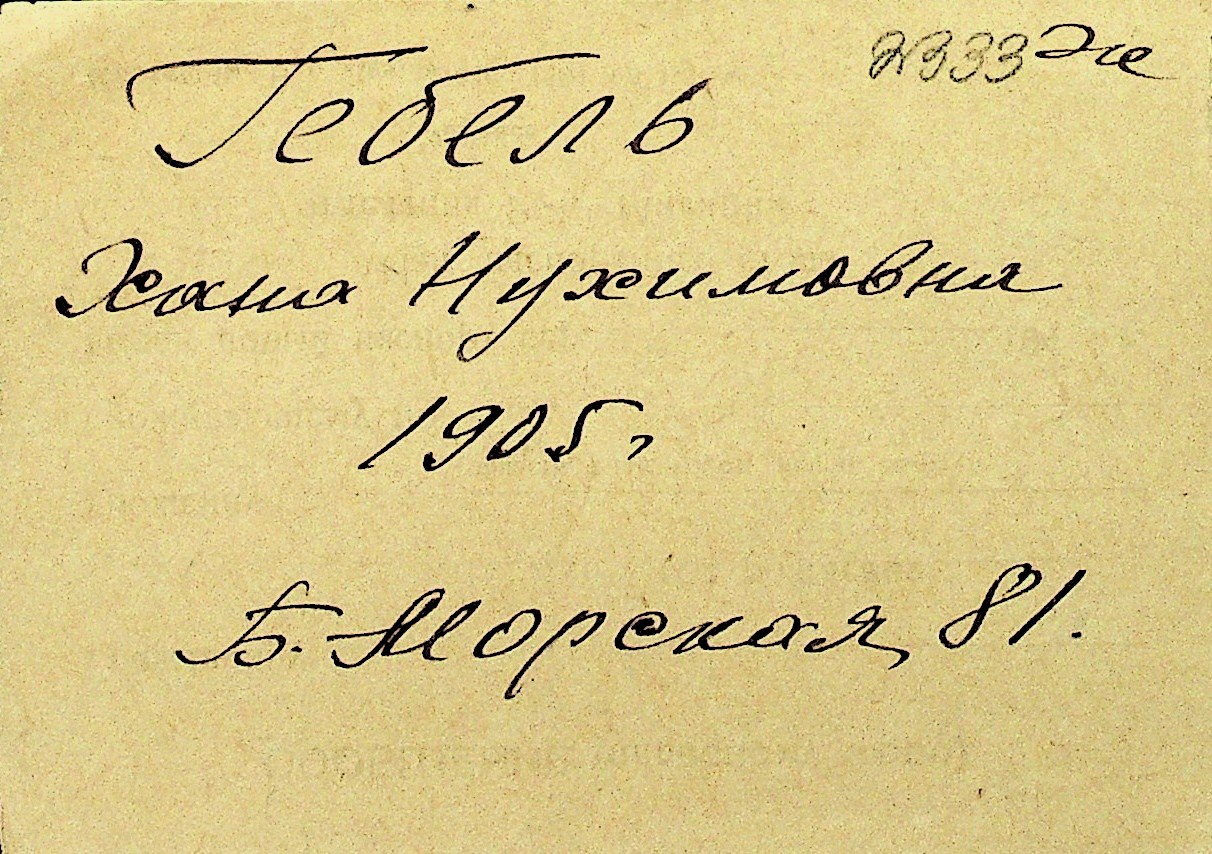 2333 Эле
Гебель
Хана Нухимовна
1905г
Б. Морская, 81.